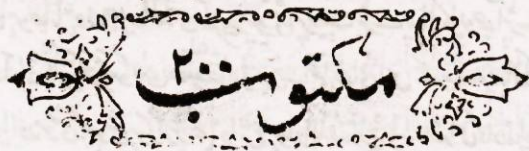 مکتوب ۲۰۰